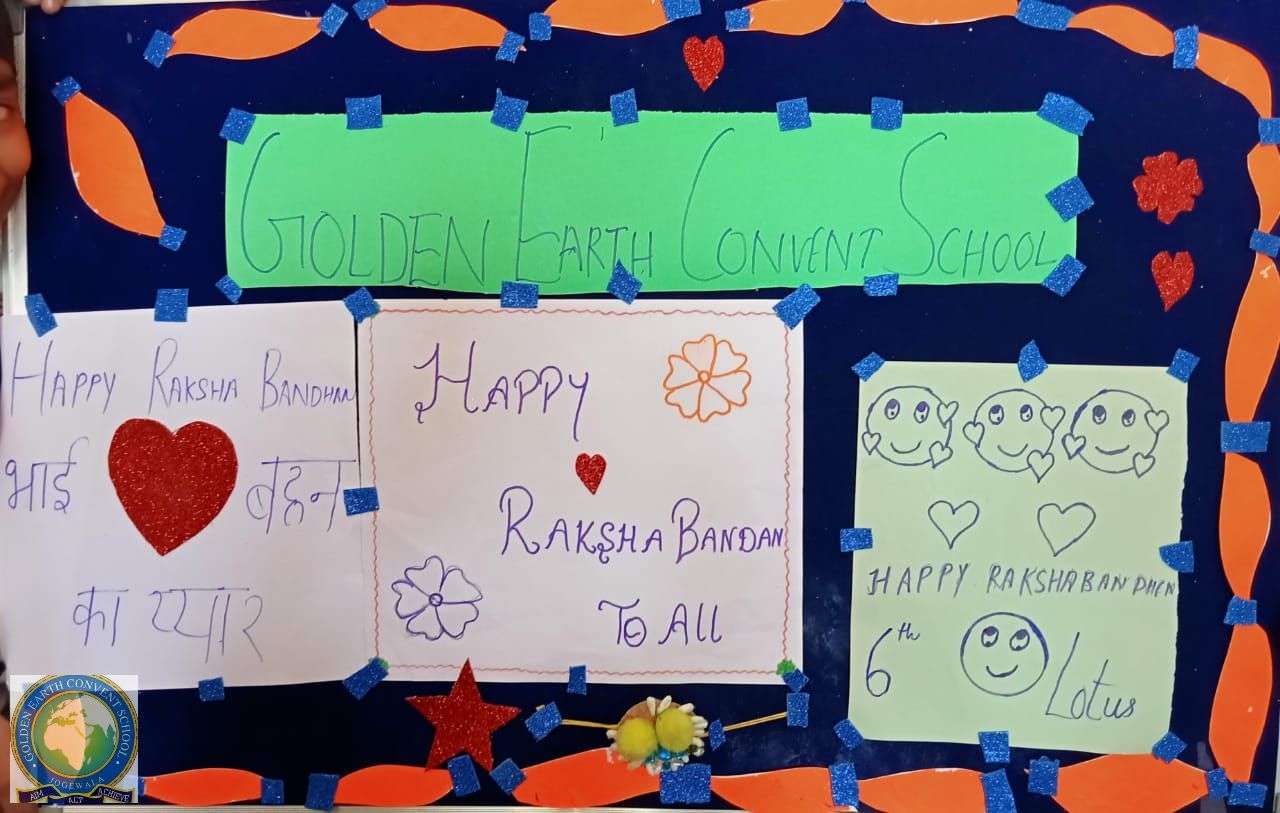 GOLDEN EARTH CONVENT SCHOOL
HAPPY RAKSHA BANDHAN
भाई बहन
का प्यार
HAPPY
RAKSHA BANDAN
TO ALL
HAPPY RAKSHABANDHEN
6th Lotus
GOLDEN EARTH CONVENT SCHOOL
JOGEWALA
AIM ACT ACHIEVE